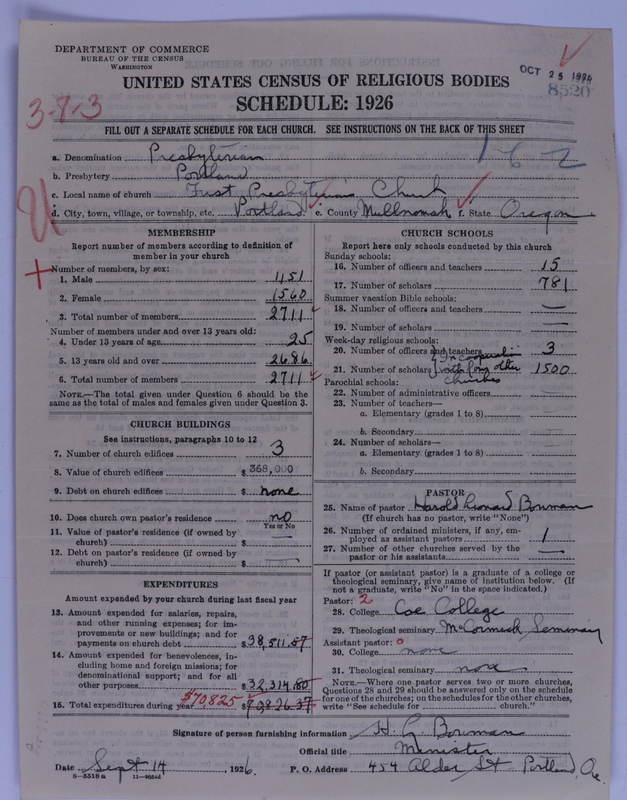 DEPARTMENT OF COMMERCE
BUREAU OF THE CENSUS
WASHINGTON
OCT 25 1926
8520
UNITED STATES CENSUS OF RELIGIOUS BODIES
SCHEDULE: 1926
3-7-3
FILL OUT A SEPARATE SCHEDULE FOR EACH CHURCH. SEE INSTRUCTIONS ON THE BACK OF THIS SHEET
162
a. Denomination Presbyterian
b. Presbytery Portland
c. Local name of church First Presbyterian Church
d. City, town, village, or township, etc. Portland e. County Multnomah f. State Oregon
MEMBERSHIP
Report number of members according to definition of
member in your church
Number of members, by sex:
1. Male 1151
2. Female 1560
3. Total number of members 2711
Number of members under and over 13 years old:
4. Under 13 years of age 25
5. 13 years old and over 2686
6. Total number of members 2711
NOTE.—The total given under Question 6 should be
the same as the total of males and females given under Question 3.
CHURCH BUILDINGS
See instructions, paragraphs 10 to 12
7. Number of church edifices 3
8. Value of church edifices $368,000
9. Debt on church edifices $ none
10. Does church own pastor's residence no
Yes or No
11. Value of pastor's residence (if owned by
church) $ —
12. Debt on pastor's residence (if owned by
church) $ —
EXPENDITURES
Amount expended by your church during last fiscal year
13. Amount expended for salaries, repairs,
and other running expenses; for im-
provements or new buildings; and for
payments on church debt $38,511.57
14. Amount expended for benevolences, in-
cluding home and foreign missions; for
denominational support; and for all
other purposes $32,314.80
$70825
15. Total expenditures during year $70826.37
CHURCH SCHOOLS
Report here only schools conducted by this church
Sunday schools:
16. Number of officers and teachers 15
17. Number of scholars 781
Summer vacation Bible schools:
18. Number of officers and teachers —
19. Number of scholars —
Week-day religious schools:
20. Number of officers and teachers 3
In cooperation
21. Number of scholars with four other 1500
churches
Parochial schools:
22. Number of administrative officers
23. Number of teachers—
a. Elementary (grades 1 to 8)
b. Secondary
24. Number of scholars—
a. Elementary (grades 1 to 8)
b. Secondary
PASTOR
25. Name of pastor Harold Leonard Bowman
(If church has no pastor, write "None")
26. Number of ordained ministers, if any, em-
ployed as assistant pastors 1
27. Number of other churches served by the
pastor or his assistants —
If pastor (or assistant pastor) is a graduate of a college or
theological seminary, give name of institution below. (If
not a graduate, write "No" in the space indicated.)
Pastor: 2
28. College Coe College
29. Theological seminary McCormick Seminary
Assistant pastor: 0
30. College none
31. Theological seminary none
NOTE.—Where one pastor serves two or more churches,
Questions 28 and 29 should be answered only on the schedule
for one of the churches; on the schedules for the other churches,
write "See schedule for church."
Signature of person furnishing information H. L. Bowman
Official title Minister
Date Sept 14, 1926. P. O. Address 454 Alder St. Portland, Ore.
8—5518 a